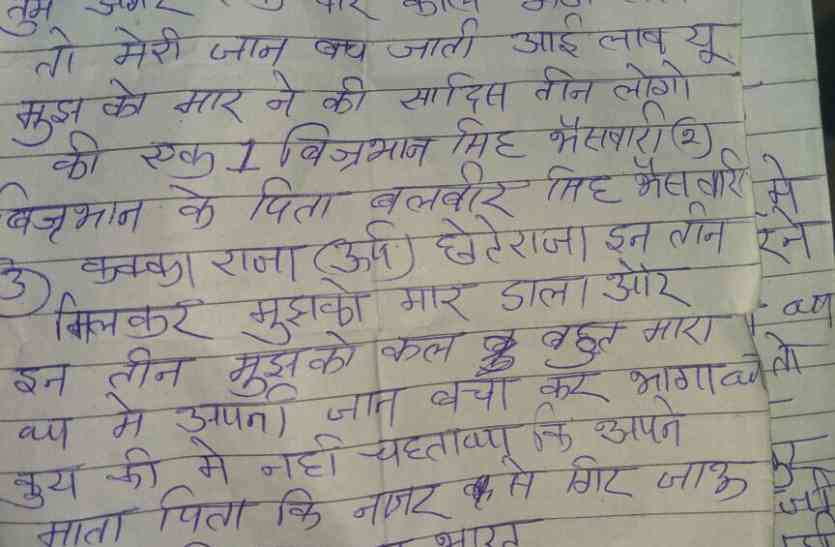 तुम अगर
तो मेरी जान बच जाती आई लाव यू
मुझ को मार ने की सादिस तीन लोगो
की एक 1 बिज्रभान सिह भैसवारी (2)
बिजृभान के पिता बलवीर सिह भैसवारी
3) कक्का राजा (उर्फ) छोटेराजा इन तीन
मिलकर मुझको मार डाला और
इन तीन मुझको कल बहुत मारा
था मे अपनी जान बचा कर भागा था
कुय की मे नही चहताथा कि अपने
माता पिता कि नाजर से गिर जाऊ
भारत
मे
रने
था
तो